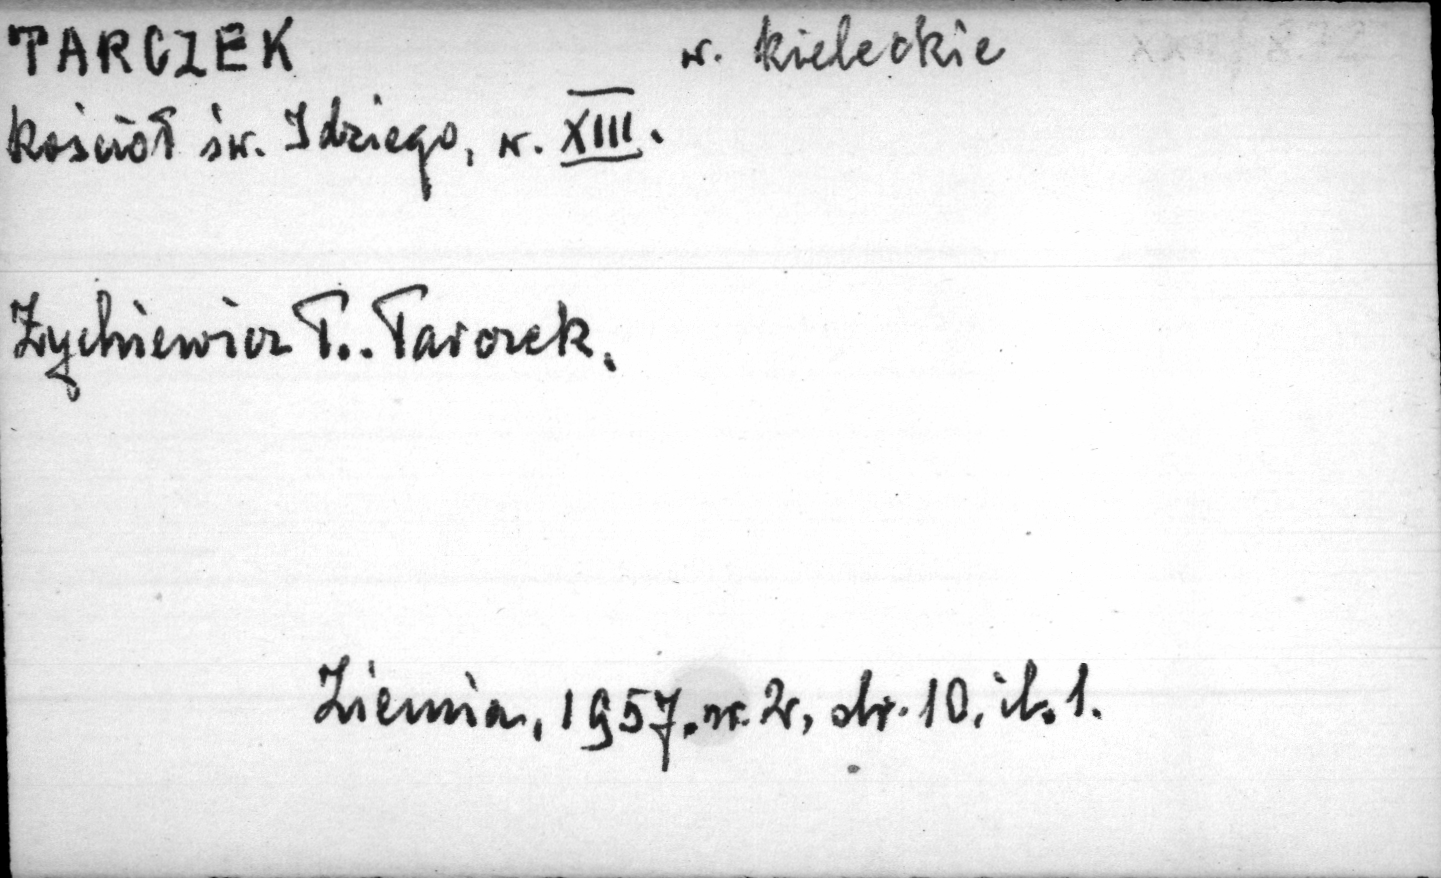 TARCZEK w. kieleckie
kościół św. Idziego, w. XIII.
Żychiewicz T.. Tarczek.
Ziemia, 1957. nr. 2, str. 10, il. 1.